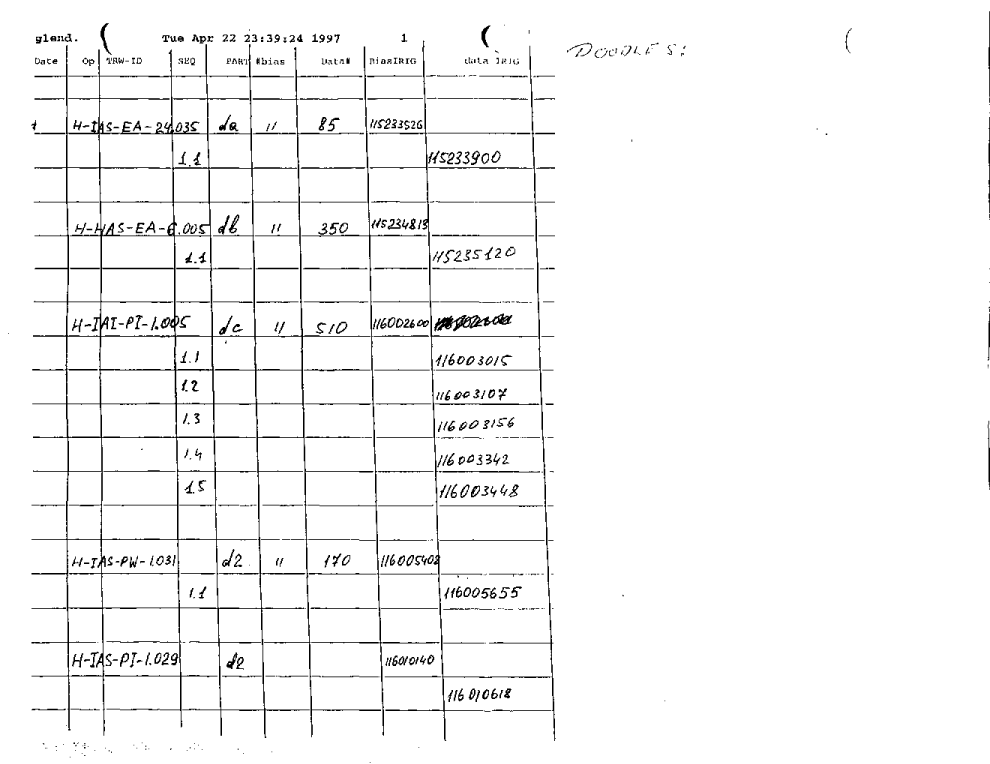 glend. ( Tue Apr 22 23:39:24 1997 1 (
DOODLES: (
Date Op TRW-ID SEQ PART #bias Data# BiasIRIG data IRIG
H-IAS-EA-24.035 da 11 85 115233526
1.1 115233900
H-HAS-EA-6.005 db 11 350 115234813
1.1 115235120
H-IAI-PI-1.005 dc 11 510 116002600
1.1 116003015
1.2 116003107
1.3 116003156
1.4 116003342
1.5 116003448
H-IAS-PW-1.031 d2 11 170 116005402
1.1 116005655
H-IAS-PI-1.029 d2 116010140
116010618